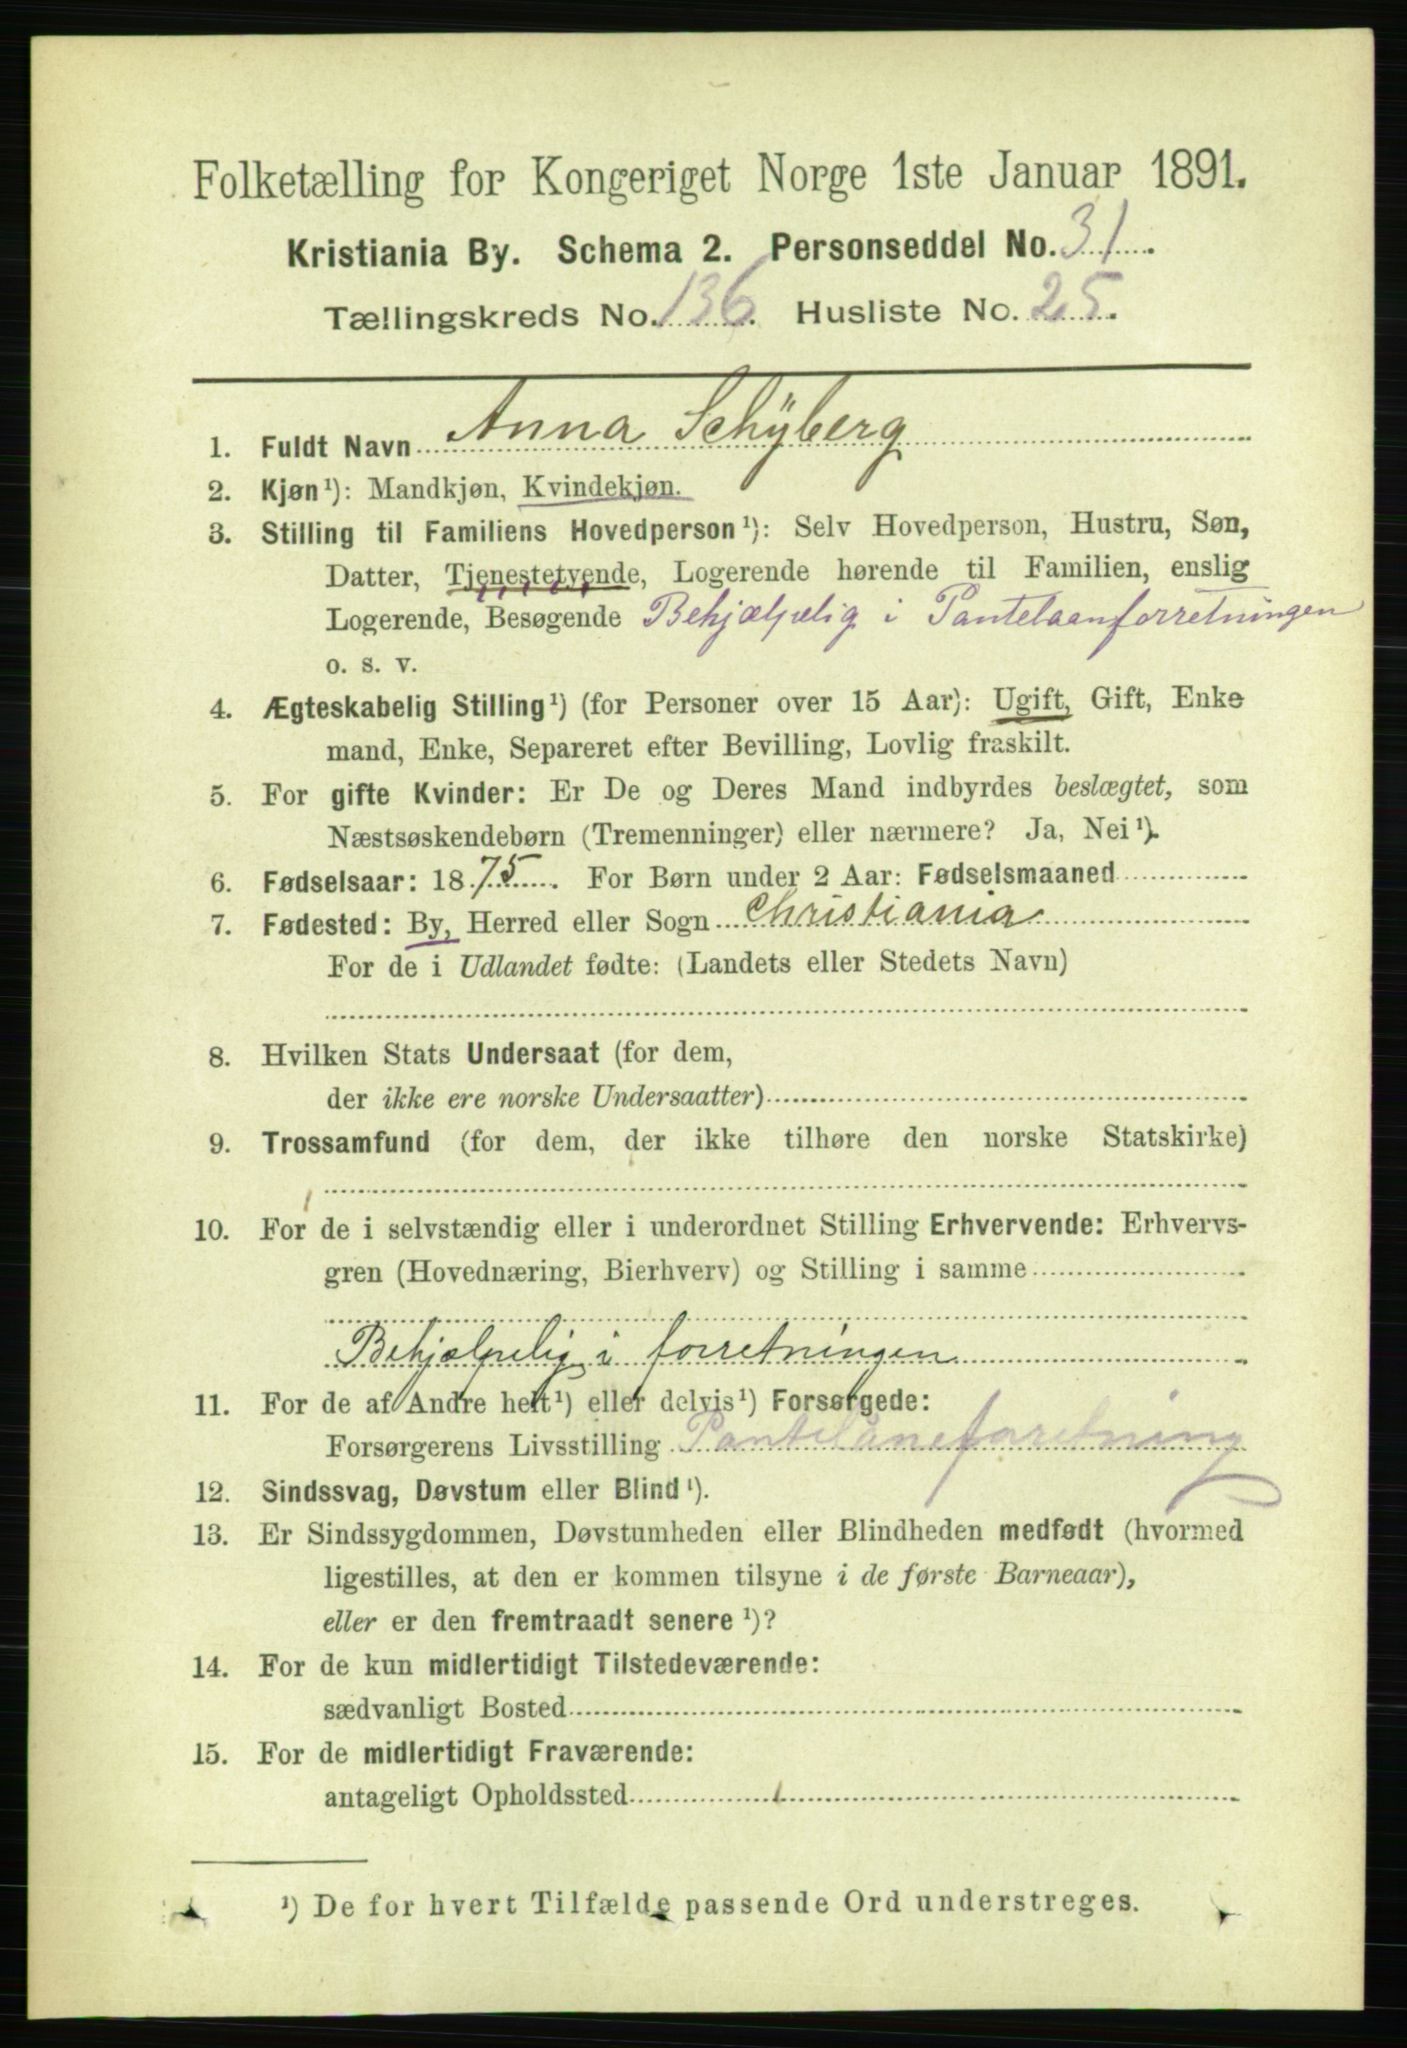 Folketælling for Kongeriget Norge 1ste Januar 1891.
Kristiania By. Schema 2. Personseddel No. 31.
Tællingskreds No. 136. Husliste No. 25.
1. Fuldt Navn Anna Schÿberg
2. Kjøn ¹): Mandkjøn, Kvindekjøn.
3. Stilling til Familiens Hovedperson ¹): Selv Hovedperson, Hustru, Søn,
Datter, Tjenestetyende, Logerende hørende til Familien, enslig
Logerende, Besøgende Behjælpelig i Pantelaanforretningen
o. s. v.
4. Ægteskabelig Stilling ¹) (for Personer over 15 Aar): Ugift, Gift, Enke
mand, Enke, Separeret efter Bevilling, Lovlig fraskilt.
5. For gifte Kvinder: Er De og Deres Mand indbyrdes beslægtet, som
Næstsøskendebørn (Tremenninger) eller nærmere? Ja, Nei ¹).
6. Fødselsaar: 1875. For Børn under 2 Aar: Fødselsmaaned
7. Fødested: By, Herred eller Sogn Christiania
For de i Udlandet fødte: (Landets eller Stedets Navn)
8. Hvilken Stats Undersaat (for dem,
der ikke ere norske Undersaatter)
9. Trossamfund (for dem, der ikke tilhøre den norske Statskirke)
10. For de i selvstændig eller i underordnet Stilling Erhvervende: Erhvervs-
gren (Hovednæring, Bierhverv) og Stilling i samme
Behjælpelig i forretningen
11. For de af Andre helt ¹) eller delvis ¹) Forsørgede:
Forsørgerens Livsstilling Pantelåneforetning
12. Sindssvag, Døvstum eller Blind ¹).
13. Er Sindssygdommen, Døvstumheden eller Blindheden medfødt (hvormed
ligestilles, at den er kommen tilsyne i de første Barneaar),
eller er den fremtraadt senere ¹)?
14. For de kun midlertidigt Tilstedeværende:
sædvanligt Bosted
15. For de midlertidigt Fraværende:
antageligt Opholdssted
¹) De for hvert Tilfælde passende Ord understreges.